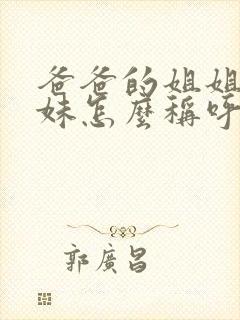 爸爸的姐姐
妹怎麼稱呼
郭廣昌